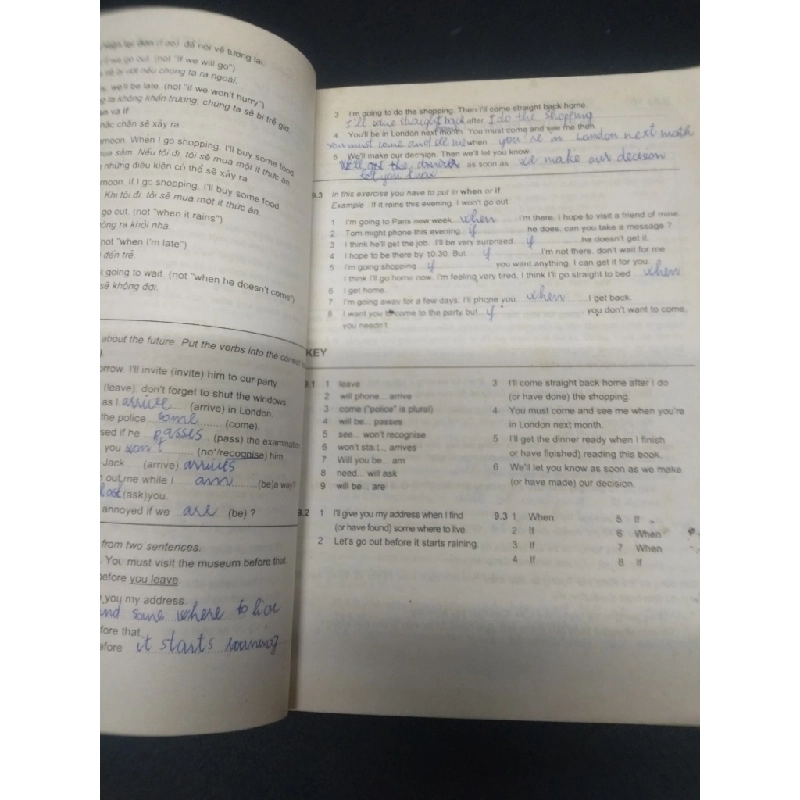 đề nói về tương lai
go out. (not "If we will go")
nếu chúng ta ra ngoài.
we'll be late. (not "if we won't hurry")
ta không khẩn trương, chúng ta sẽ bị trễ giờ.
và If
chắc chắn sẽ xảy ra
When I go shopping. I'll buy some food
Nếu tôi đi, tôi sẽ mua một ít thức ăn
những điều kiện có thể sẽ xảy ra
if I go shopping, I'll buy some food
Khi tôi đi, tôi sẽ mua một ít thức ăn.
go out. (not "when it rains")
ra khỏi nhà.
not "when I'm late")
đến trễ.
going to wait. (not "when he doesn't come")
sẽ không đợi.
about the future. Put the verbs into the correct
I'll invite (invite) him to our party
(leave), don't forget to shut the windows
as I arrive (arrive) in London.
the police come (come).
sed if he passes (pass) the examination
you won't (not/recognise) him
Jack (arrive) arrives
out me while I am (be) away?
(ask) you.
annoyed if we are (be) ?
from two sentences.
You must visit the museum before that.
before you leave.
you my address.
some where to live
fore that
fore it starts
3 I'm going to do the shopping. Then I'll come straight back home.
I'll come straight back after I do the shopping
4 You'll be in London next month. You must come and see me then
You must come and see me when you're in London next month
5 We'll make our decision. Then we'll let you know
as soon as we make our decision
let you know
9.3 In this exercise you have to put in when or if
Example If it rains this evening, I won't go out.
1 I'm going to Paris now week. when I'm there, I hope to visit a friend of mine.
2 Tom might phone this evening. if he does, can you take a message ?
3 I think he'll get the job. I'll be very surprised if he doesn't get it.
4 I hope to be there by 10.30. But if I'm not there, don't wait for me
5 I'm going shopping. if you want anything, I can get it for you.
I think I'll go home now. I'm feeling very tired. I think I'll go straight to bed when
6 I get home.
7 I'm going away for a few days. I'll phone you when I get back.
8 I want you to come to the party but if you don't want to come,
you needn't
KEY
9.1 1 leave
2 will phone... arrive
3 come ("police" is plural)
4 will be... passes
5 see... won't recognise
6 won't start... arrives
7 Will you be... am
8 need... will ask
9 will be... are
9.2 1 I'll give you my address when I find
(or have found) some where to live
2 Let's go out before it starts raining.
3 I'll come straight back home after I do
(or have done) the shopping.
4 You must come and see me when you're
in London next month.
5 I'll get the dinner ready when I finish
(or have finished) reading this book.
6 We'll let you know as soon as we make
(or have made) our decision.
9.3 1 When
2 If
3 If
4 If
5 If
6 When
7 When
8 If